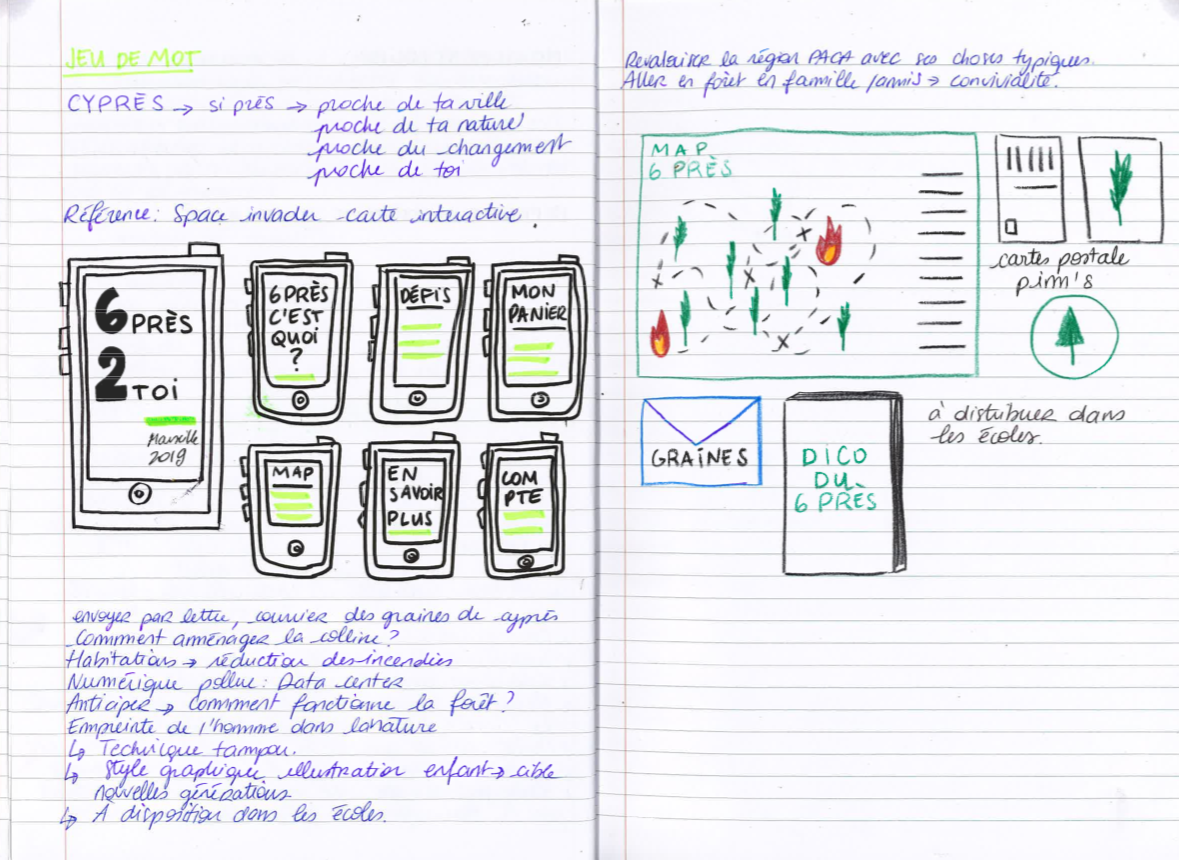 JEU DE MOT
CYPRÈS → si près → proche de ta ville
proche de ta nature
proche du changement
proche de toi
Référence: Space invader carte interactive.
6 PRÈS
2 TOI
Marseille
2019
6 PRÈS
C'EST
QUOI
?
DÉFIS
MON
PANIER
MAP
EN
SAVOIR
PLUS
COM
PTE
envoyer par lettre, courrier des graines de cyprès
Comment aménager la colline?
Habitations → réduction des incendies
Numérique pollue: Data center
Anticiper → Comment fonctionne la forêt?
Empreinte de l'homme dans la nature
↳ Technique tampon.
↳ Style graphique illustration enfant → cible
nouvelles générations
↳ À disposition dans les écoles.
Revaloriser la région PACA avec ses choses typiques.
Aller en forêt en famille /amis → convivialité.
MAP
6 PRÈS
cartes postale
pim's
GRAÎNES
DICO
DU
6 PRES
à distribuer dans
les écoles.